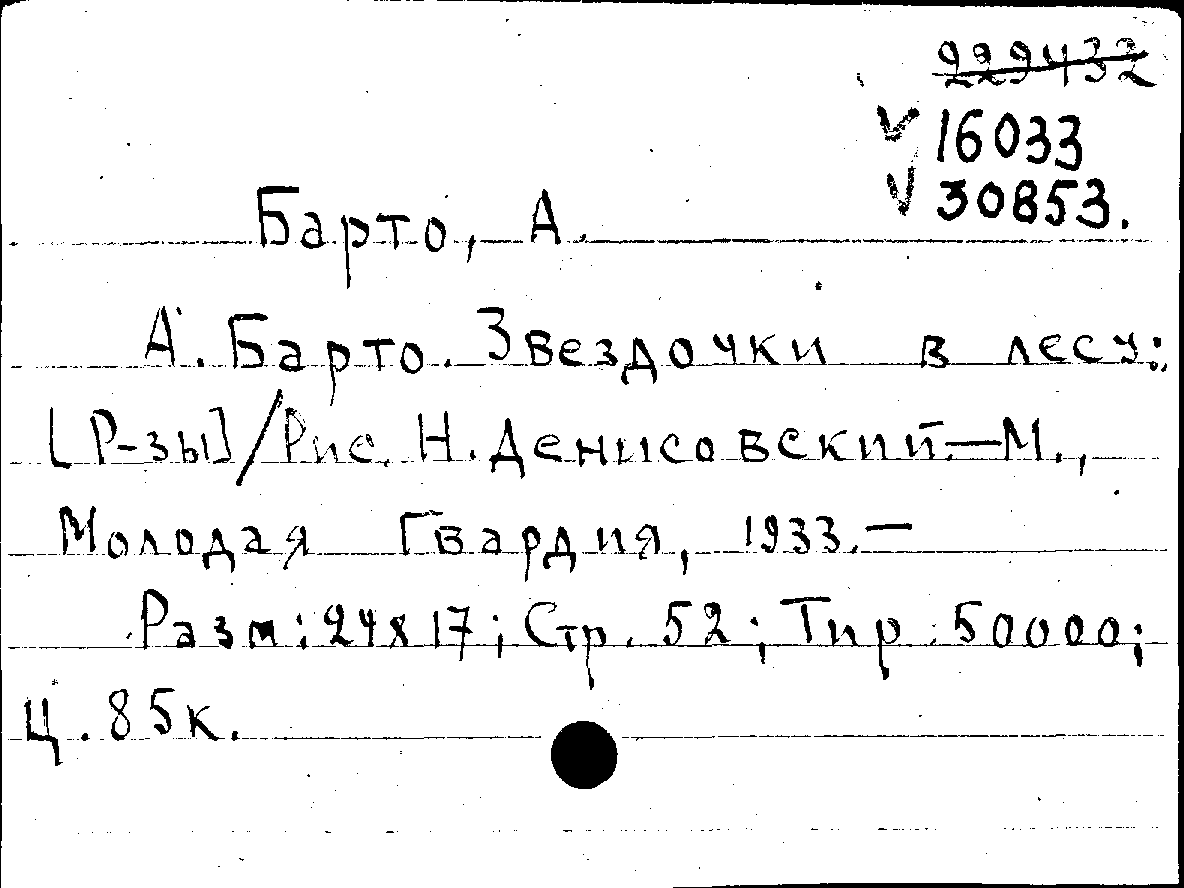 229432
V 16033
V 30853.
Барто, А.
А. Барто. Звездочки в лесу:
[Р-зы]/Рис. Н. Денисовский.—М.,
Молодая Гвардия, 1933.—
Разм: 24х17; Стр. 52; Тир. 50000;
Ц. 85к.